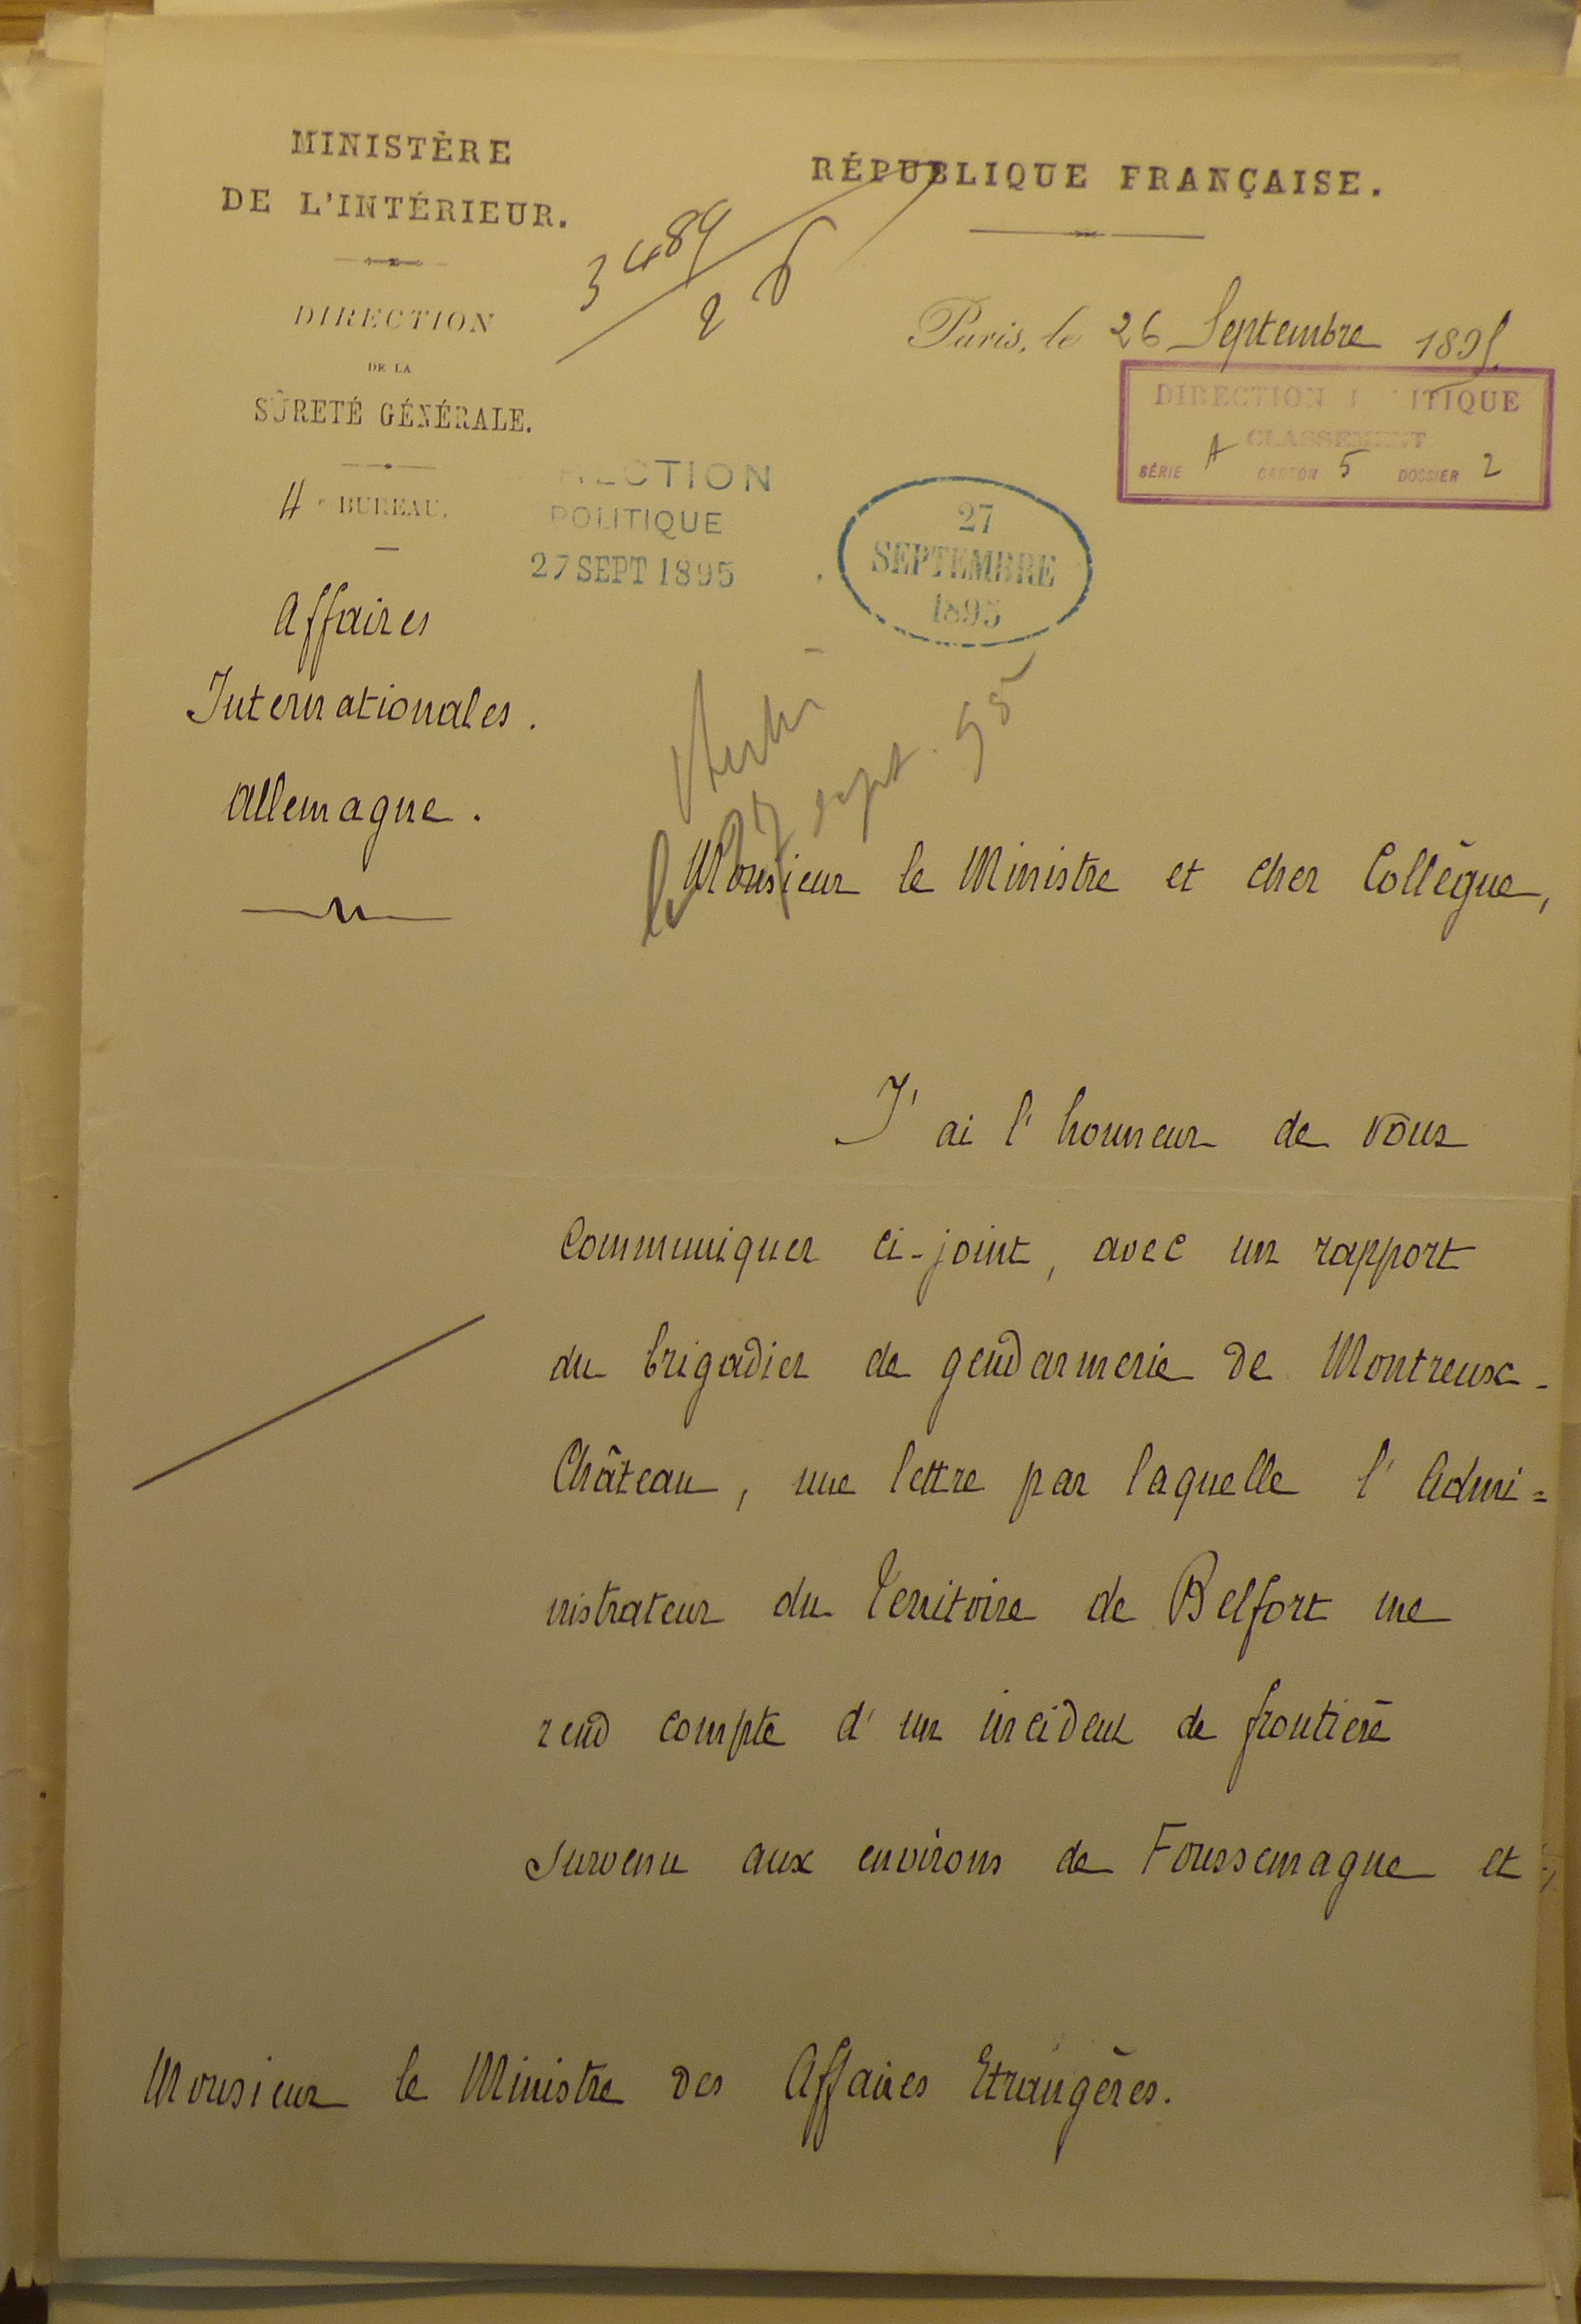 MINISTÈRE
DE L'INTÉRIEUR.
DIRECTION
DE LA
SÛRETÉ GÉNÉRALE.
4e BUREAU.
Affaires
Internationales.
Allemagne.
RÉPUBLIQUE FRANÇAISE.
Paris, le 26 Septembre 1895.
DIRECTION
CLASSEMENT
SÉRIE A CARTON 5 DOSSIER 2
POLITIQUE
27 SEPT 1895
27
SEPTEMBRE
1895
sept. 95
Monsieur le Ministre et cher Collègue,
J'ai l'honneur de vous
communiquer ci-joint, avec un rapport
du brigadier de gendarmerie de Montreux-
Château, une lettre par laquelle l'Admi=
nistrateur du Territoire de Belfort me
rend compte d'un incident de frontière
survenu aux environs de Foussemagne et
Monsieur le Ministre des Affaires Etrangères.